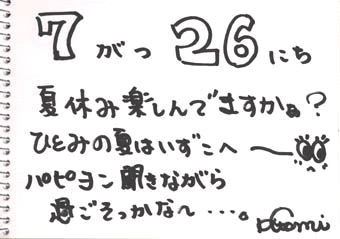 7がつ26にち
夏休み楽しんでますかぁ?
ひとみの夏はいずこへ〜
パピヨン聞きながら
過ごそっかな〜…。